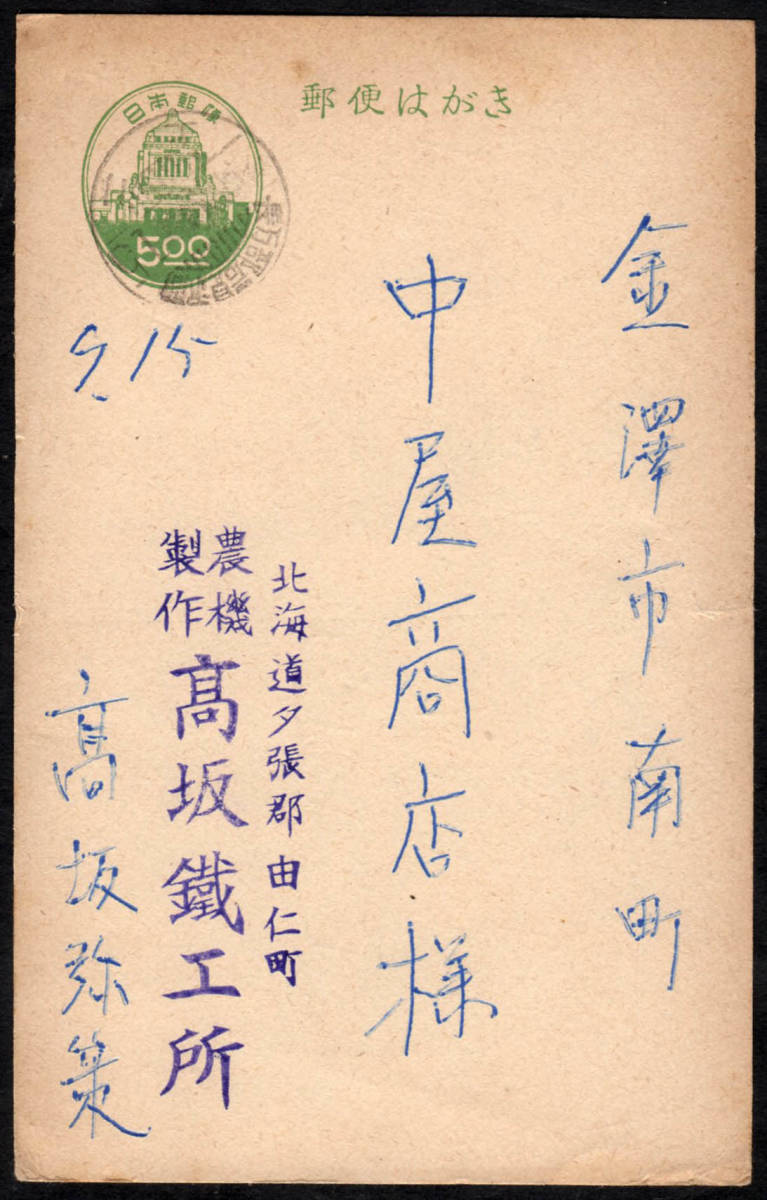 郵便はがき
日本郵便
5.00
金澤市南町
中屋商店様
9.15
北海道夕張郡由仁町
農機
製作
髙坂鐵工所
髙坂弥策